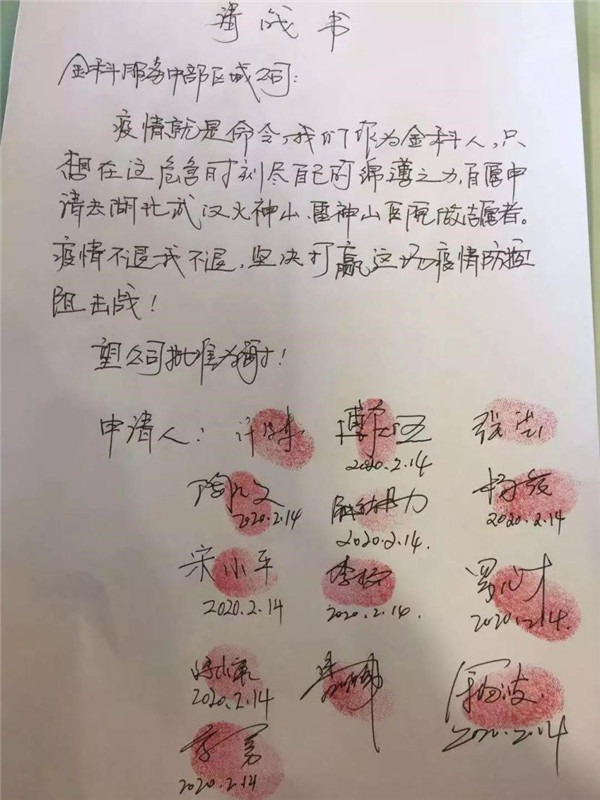 请战书
金科服务中部区域公司:
疫情就是命令,我们作为金科人,只
想在这危急时刻尽自己的绵薄之力,自愿申
请去湖北武汉火神山、雷神山医院做志愿者。
疫情不退我不退,坚决打赢这场疫情防控
阻击战!
望公司批准为谢!
申请人:
2020.2.14
2020.2.14 2020.2.14 2020.2.14
宋小平 李
2020.2.14 2020.2.14 2020.2.14
2020.2.14 2020.2.14
李勇
2020.2.14